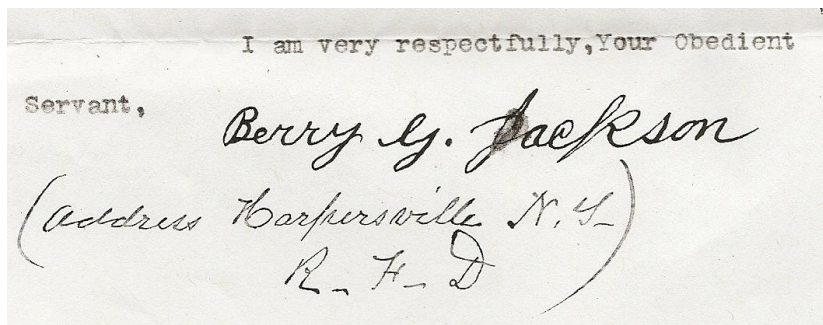 I am very respectfully,Your Obedient
Servant,
Berry G. Jackson
(Address Harpersville N.Y.
R. F. D
)